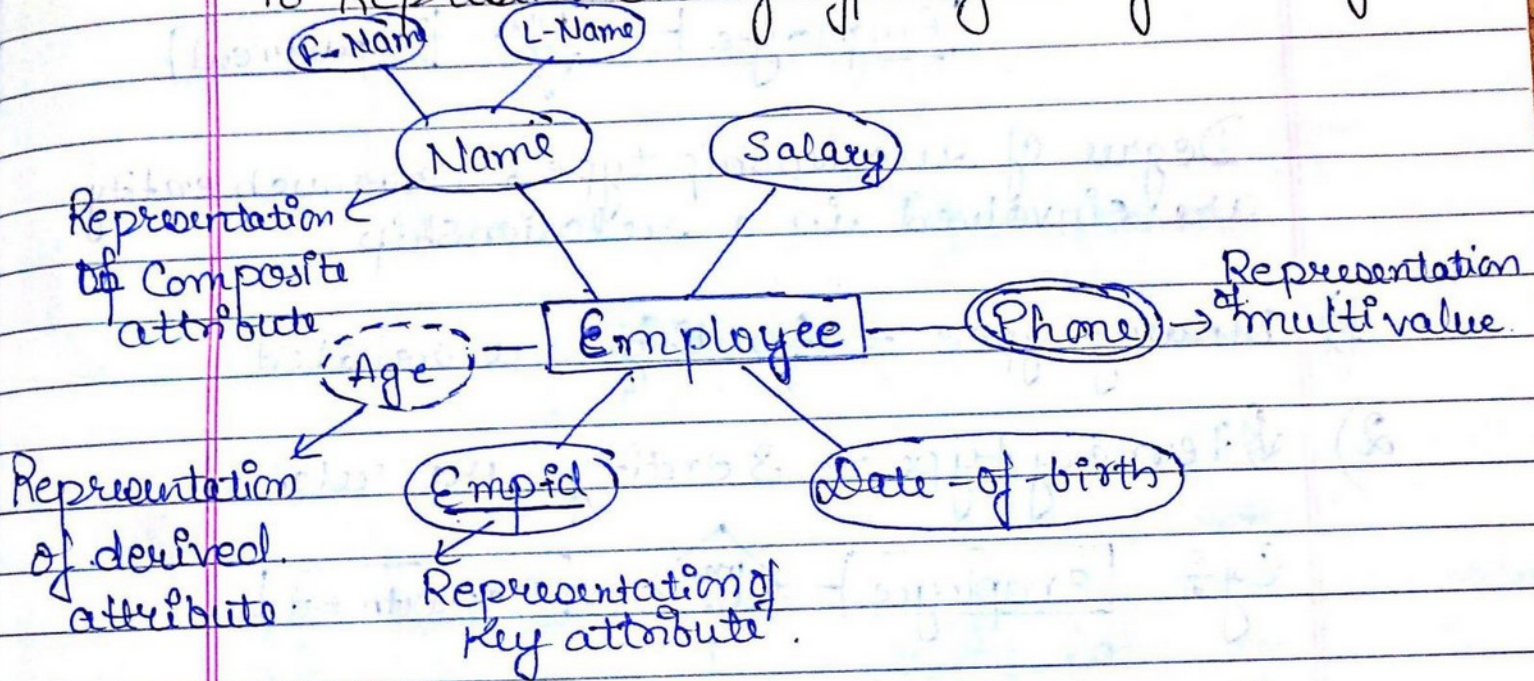 F-Nam
L-Name
Name
Salary
Representation
of Composite
attribute
Employee
Phone
Representation
of multivalue
Age
Representation
of derived
attribute
Empid
Date-of-birth
Representation of
Key attribute.